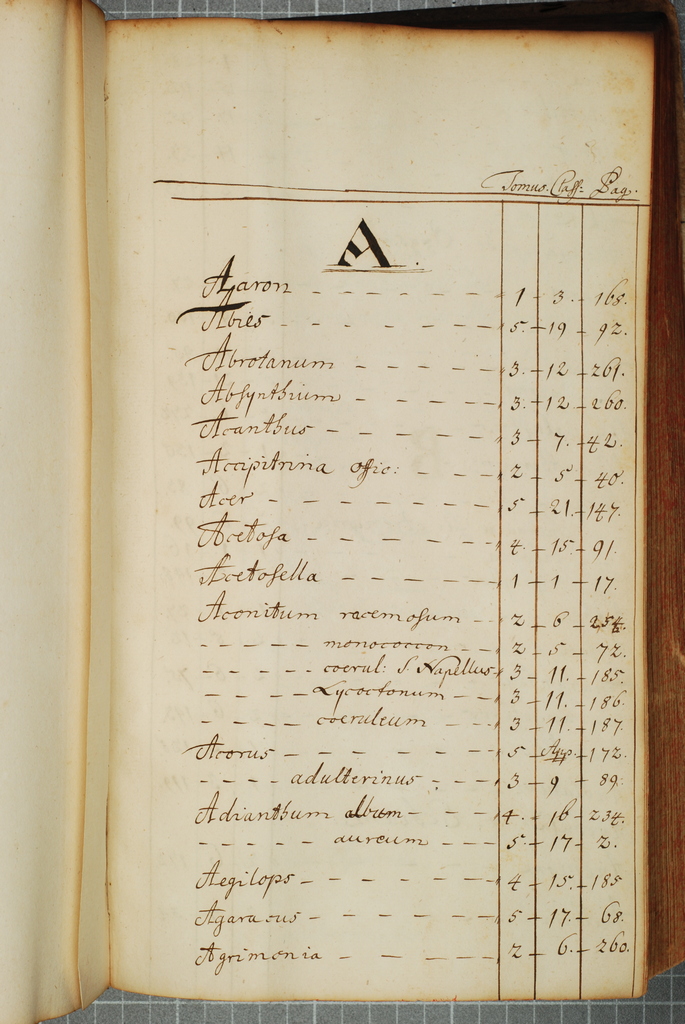 Tomus. Class. Pag.
A.
Aaron - - - - - - 1 - 3. - 168.
Abies - - - - - - 5. - 19 - 92.
Abrotanum - - - - 3. - 12 - 261.
Absynthium - - - - 3. - 12 - 260.
Acanthus - - - - - 3 - 7. - 42.
Accipitrina offic: - - - 2 - 5 - 40.
Acer - - - - - - - 5 - 21. - 147.
Acetosa - - - - - 4. - 15. - 91.
Acetosella - - - - 1 - 1 - 17.
Aconitum racemosum - - 2 - 6 - 254.
- - - - - monococcon - - 2 - 5 - 72.
- - - - - coerul: S. Napellus 3 - 11. - 185.
- - - - - Lycoctonum - - 3 - 11. - 186.
- - - - - coeruleum - - 3 - 11. - 187.
Acorus - - - - - - 5 - App. - 172.
- - - - adulterinus - - - 3 - 9 - 89.
Adianthum album - - - 4. - 16 - 234.
- - - - - aureum - - - 5. - 17 - 2.
Aegilops - - - - - - 4 - 15. - 185
Agaracus - - - - - - 5 - 17. - 68.
Agrimonia - - - - - 2 - 6. - 260.